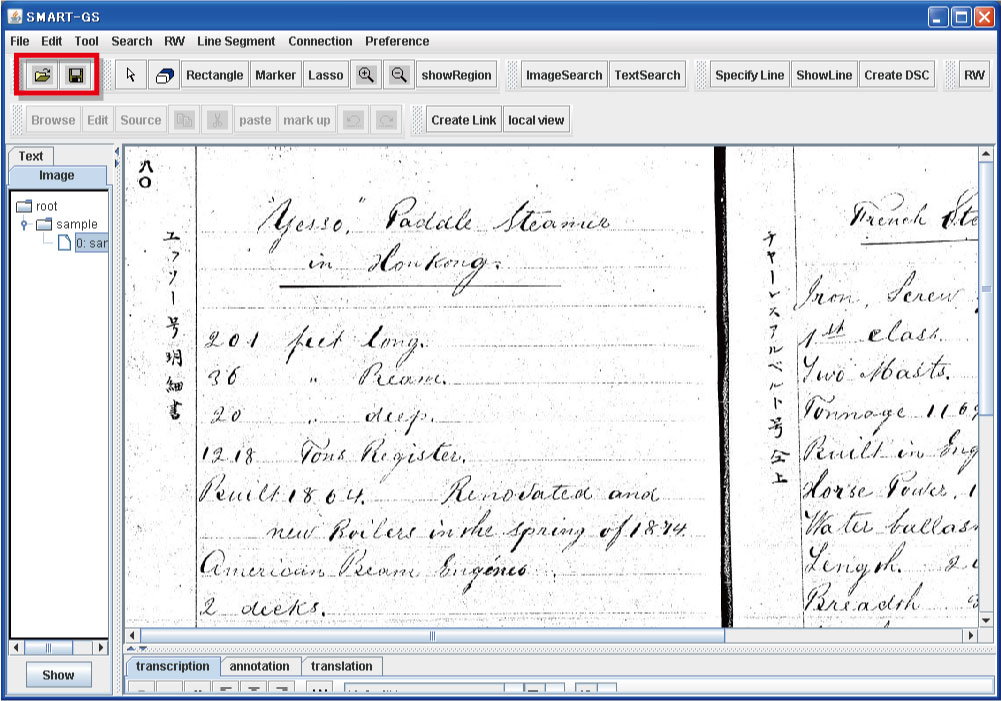 SMART-GS
File Edit Tool Search RW Line Segment Connection Preference
Rectangle Marker Lasso showRegion ImageSearch TextSearch Specify Line ShowLine Create DSC RW
Browse Edit Source paste mark up Create Link local view
Text
Image
root
sample
0: sar
Show
八〇
"Yesso," Paddle Steamer
in Honkong.
エッソー号明細書
201 feet long.
36 " Beam.
20 " deep.
1218 Tons Register.
Built 1864. Renovated and
new Boilers in the spring of 1874.
American Beam Engines.
2 decks.
French Ste
号仝上
Iron, Screw
1st class.
Two Masts.
Tonnage 1169
Built in Eng
Horse Power. 1
Water ballas
Length. 2
Breadth
transcription annotation translation